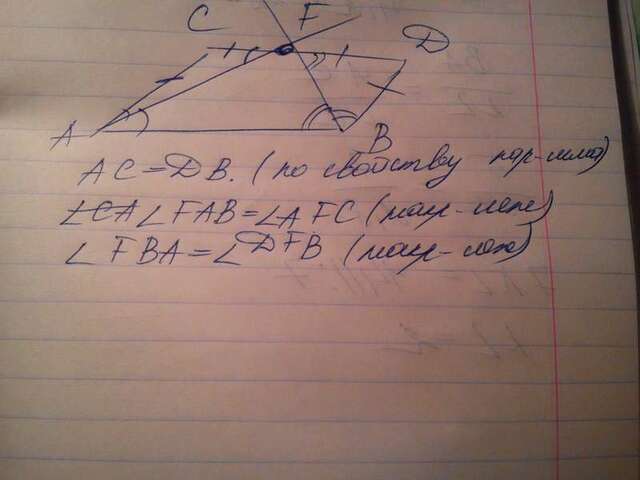 C F D
A B
AC = DB. (по свойству пар-мма)
∠FAB = ∠AFC (накр-леж)
∠FBA = ∠DFB (накр-леж)